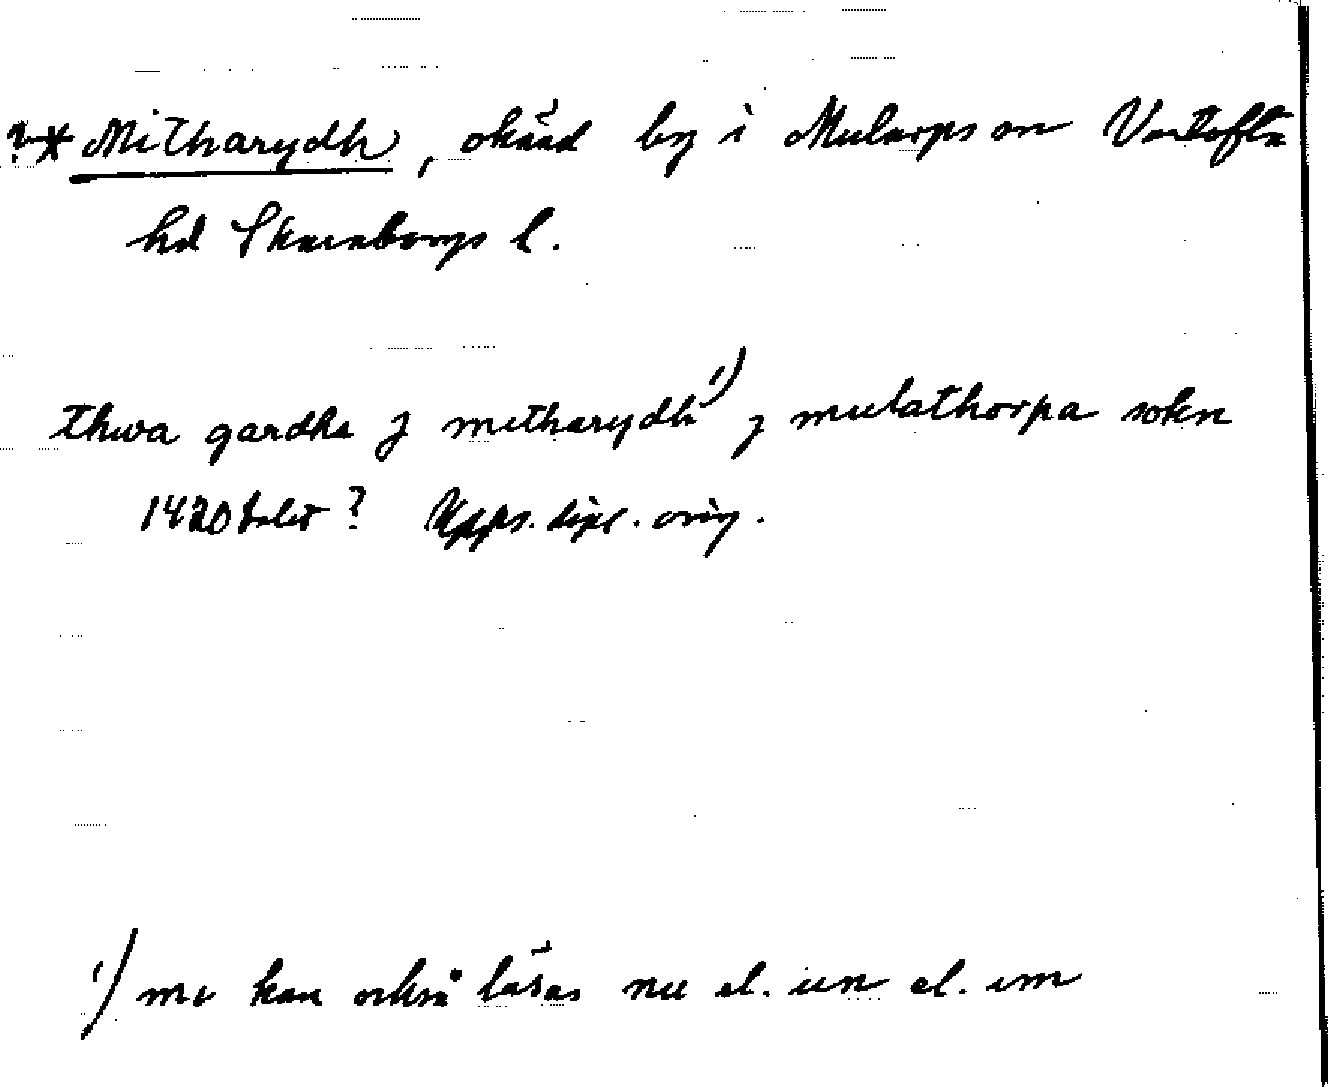 ?* Mitharydh, okänd by i Mularps sn Vartofta
hd Skaraborgs l.
thwa gardha j mitharydh 1) j mulathorpa sokn
1420 talet? Upps. dipl. orig.
1) mi kan också läsas nu el. un el. im